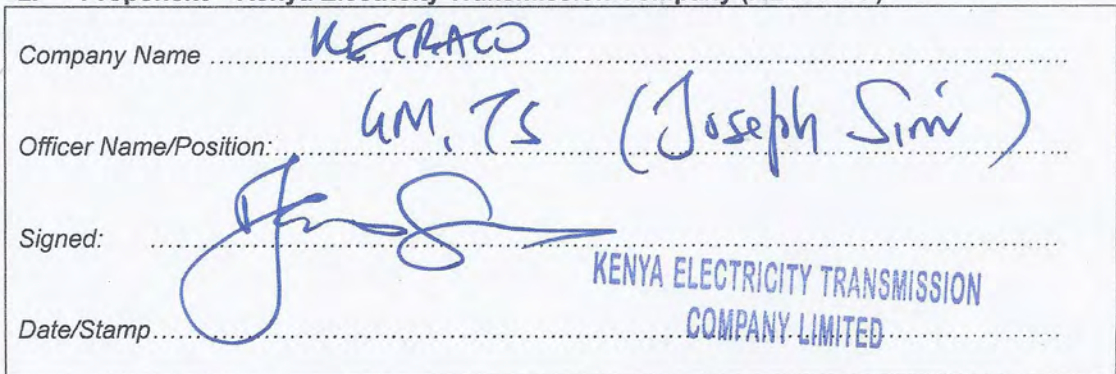 Company Name ........ KETRACO
Officer Name/Position: ........ GM, TS (Joseph Siror)
Signed: ........
KENYA ELECTRICITY TRANSMISSION
Date/Stamp ........ COMPANY LIMITED